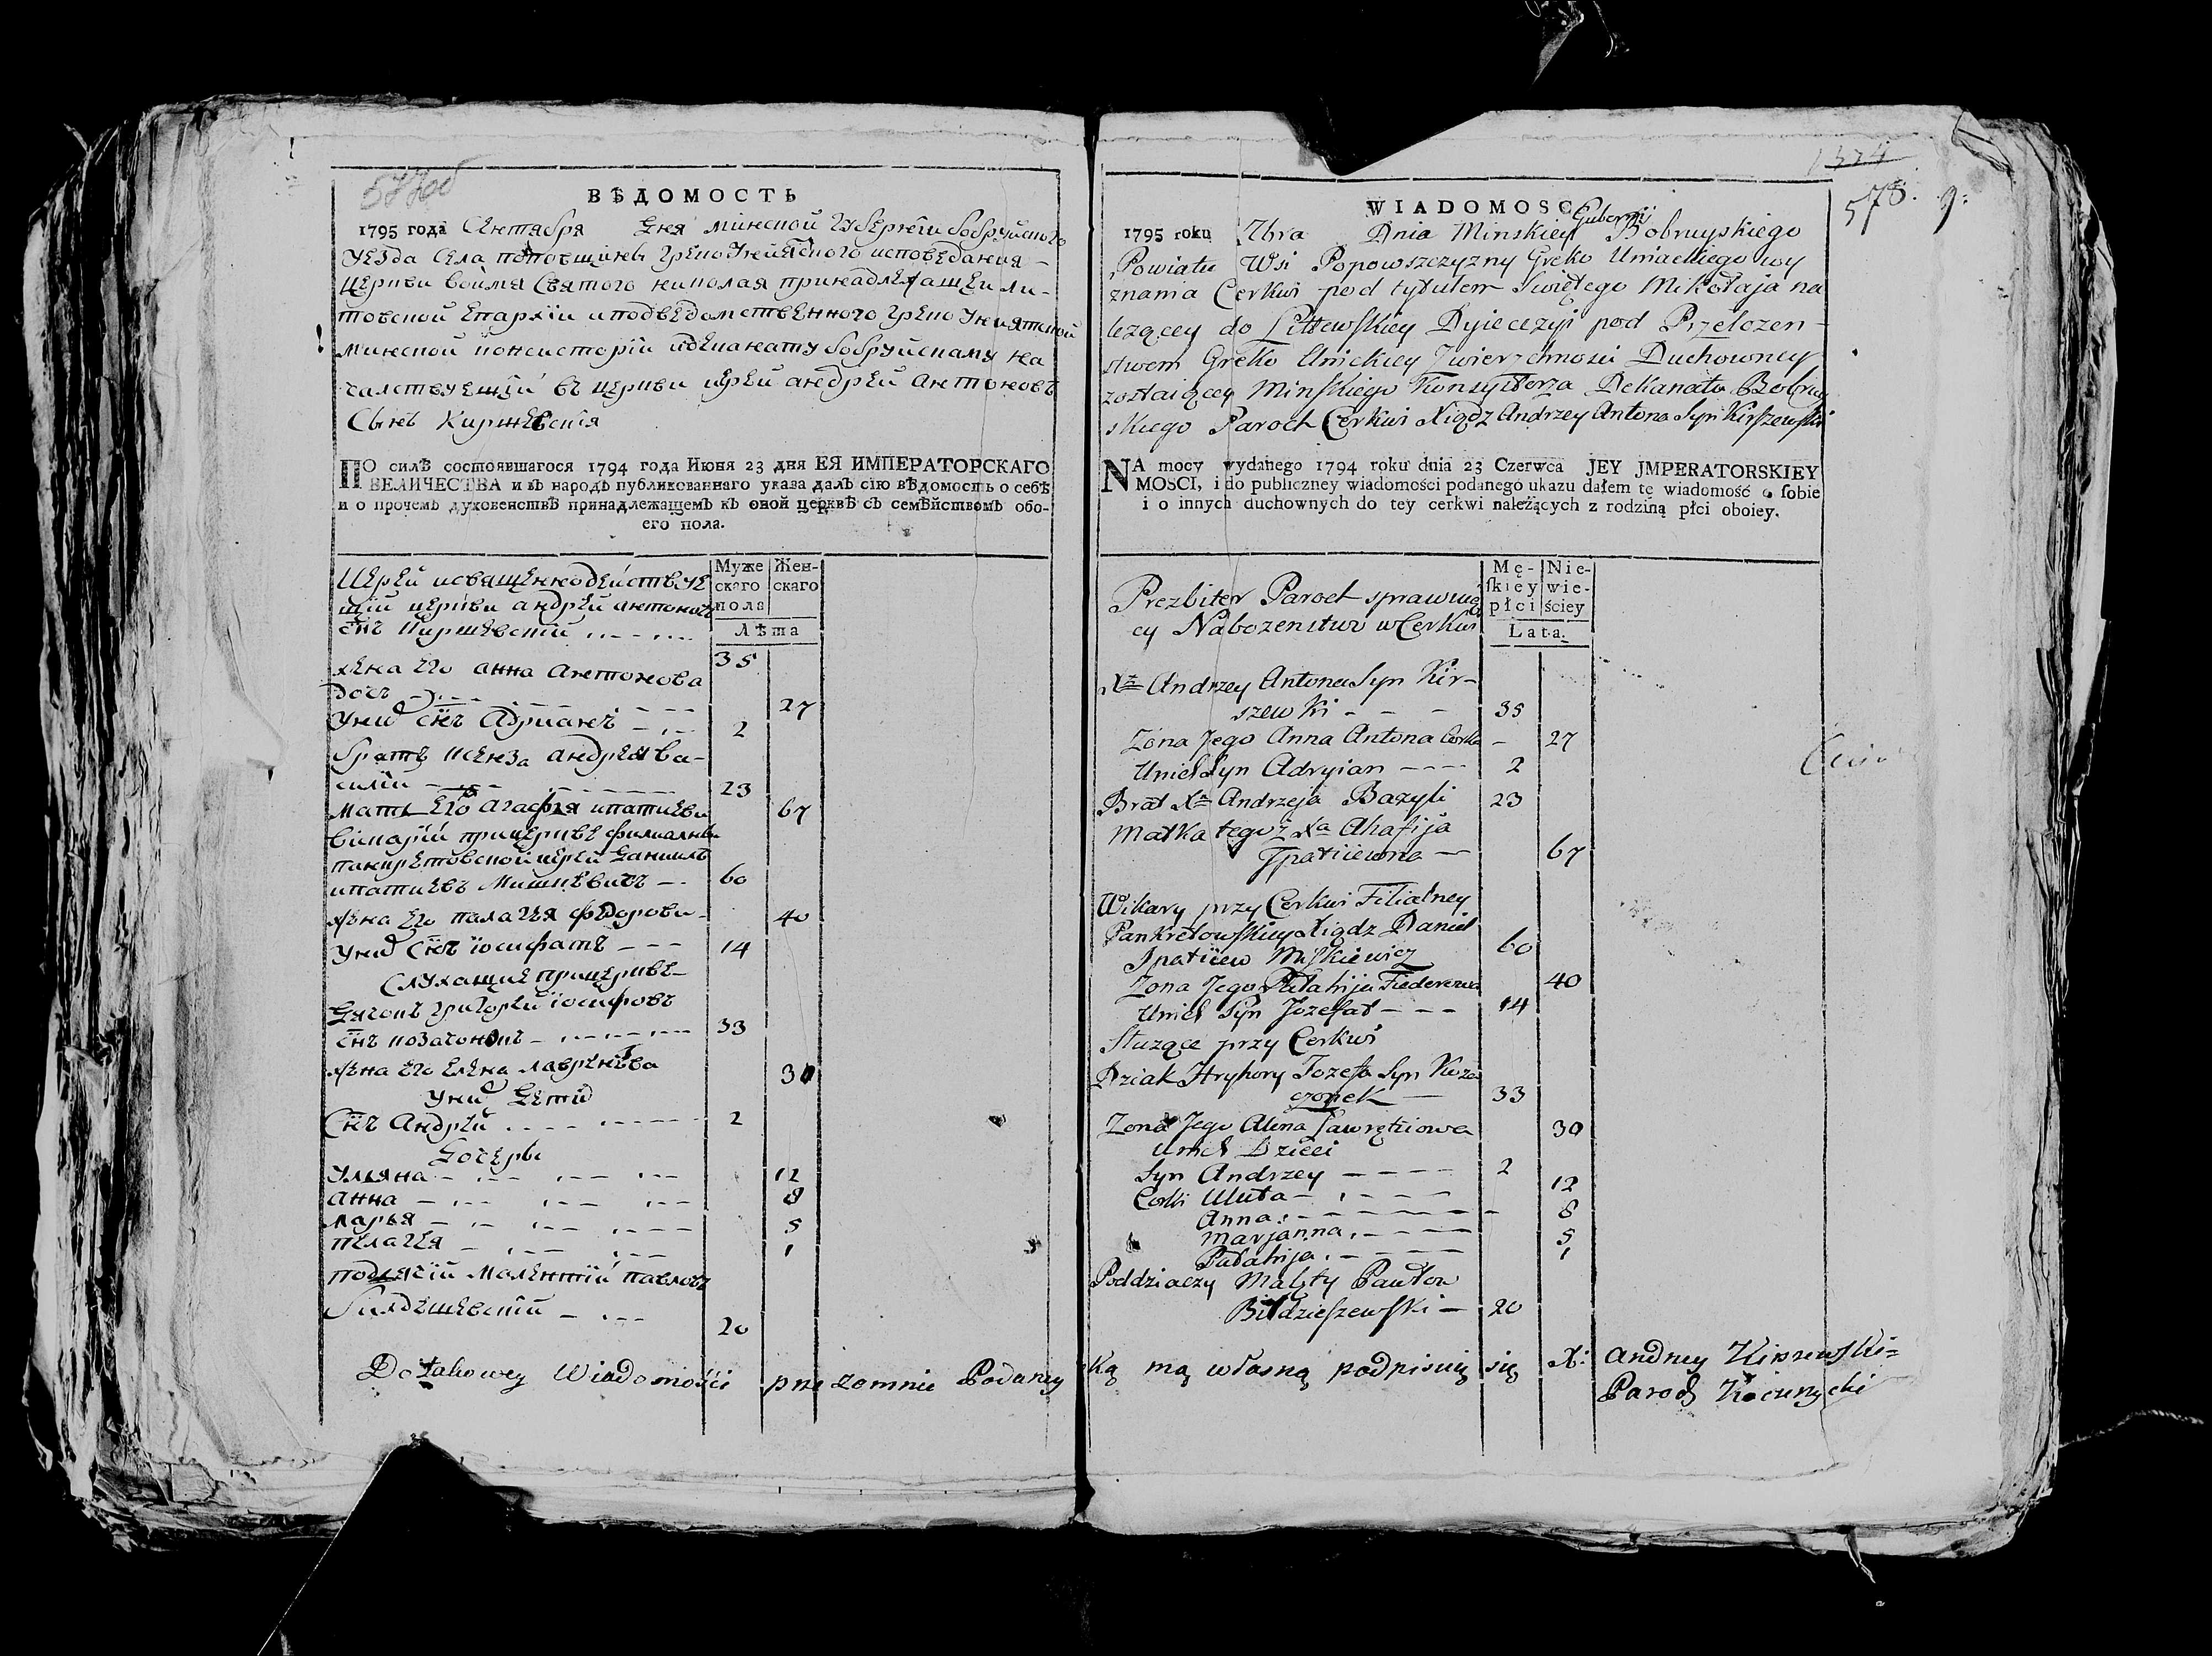 577об
ВѢДОМОСТЬ
1795 года Сентября дня минской губернїи бобруйского
уезда села поповщины грекоунїятского исповедания
церкви воимя Святого николая принадлежащеи ли-
товской епархїи иподведомственного греко униятской
минской консисторїи идеканату бобруйскаму на
чалствуещїй въ церкви иерей андрей антоновъ
Сынъ Киршевскїя
ПО силѣ состоявшагося 1794 года Июня 23 дня ЕЯ ИМПЕРАТОРСКАГО
ВЕЛИЧЕСТВА и въ народѣ публикованнаго указа далъ сїю вѣдомость о себѣ
и о прочемъ духовенствѣ принадлежащемъ къ оной церквѣ съ семѣйствомъ обо-
его пола.
Муже Жен-
скаго скаго
пола
Лѣта
Иерей исвященнодействуе
щїй церкви андрей антоновъ
снъ Киршевскїй 35
жена его анна антонова
дочь 27
уних снъ Адрианъ 2
братъ ксенза андрея ва-
силїй 23
мать его агафїя ипатиева 67
викарїй прицеркве филиалнои
панкретовской иерей даниилъ
ипатиевъ Мишкевичъ 60
жена его палагея федорова 40
уних снъ їосифатъ 14
Служащие прицеркве
Дячокъ григорей їосифовъ
снъ козачонокъ 33
жена его елена лавренева 30
уних дети
Снъ Андрей 2
Дочери
Ульяна 12
анна 8
марья 5
пелагея 1
поддячїй малентїй павловъ
билдешевскїй 20
WIADOMOSC
1795 roku 7bra Dnia Minskiey Gubernij Bobruyskiego
Powiatu Wsi Popowszczyzny Greko Uniackiego wy
znania Cerkwi pod tytułem Swiętego Mikołaja na
lezącey do Littewskiey Dyiecezyi pod Przełozen-
stwem Greko Unickiey Zwierzchnosci Duchowney
zostaiącey Minskiego Konsystorza Dekanatu Bobruy
skiego Paroch Cerkwi Xiądz Andrzey Antona Syn Kirszewski
NA mocy wydanego 1794 roku dnia 23 Czerwca JEY JMPERATORSKIEY
MOSCI, i do publiczney wiadomości podanego ukazu dałem tę wiadomość o sobie
i o innych duchownych do tey cerkwi należących z rodziną płci oboiey.
Mę- Nie-
skiey wie-
płci ściey
Lata.
Prezbiter Paroch sprawuią
cy Nabozenstwo w Cerkwi
Xz Andrzey Antona Syn Kir-
szewski 35
Zona Jego Anna Antona Corka 27
Unich Syn Adryian 2
Brat Xa Andrzeja Bazyli 23
Matka tegoż Xa Ahafija
Jpatiiewna 67
Wikary przy Cerkwi Filialney
Pankretowskiey Xiądz Daniel
Jpatiiew Miszkiewicz 60
Zona Jego Pałahija Fiederowna 40
Unich Syn Jozefat 14
Słuzące przy Cerkwi
Dziak Hryhory Jozefa Syn Koza
czonek 33
Zona Jego Alena Ławręniowa 30
Unich Dzieci
Syn Andrzey 2
Corki Uluta 12
Anna 8
Marjanna 5
Pałahija 1
Poddziaczy Malęty Pawłow
Biłdzieszewski 20
Do takowey Wiadomości prze zemnie Podaney Ką mą własną podpisuię się X: Andrzey Kirszewski
Paroch
578. 9: